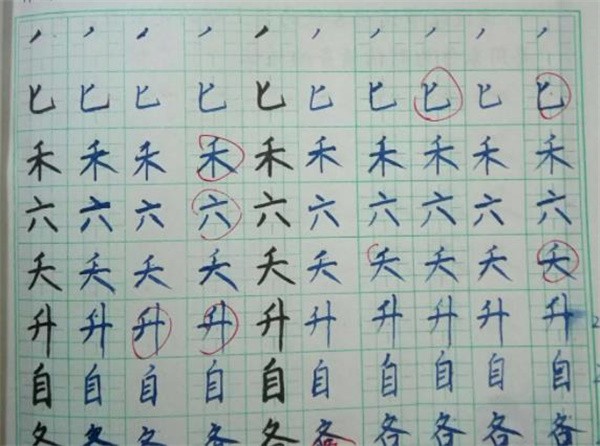 丿丿丿丿丿丿丿丿丿丿
匕匕匕匕匕匕匕匕匕匕
禾禾禾禾禾禾禾禾禾禾
六六六六六六六六六六
夭夭夭夭夭夭夭夭夭夭
升升升升升升升升升升
自自自自自自自自自自
各各各各各各各各各各